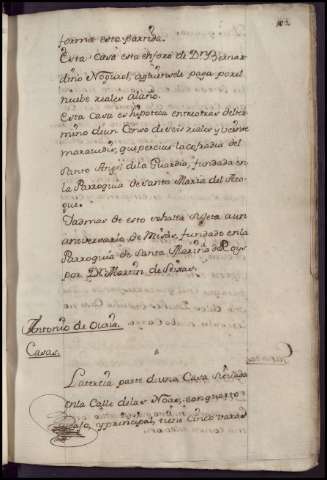 forma esta Partida.
Esta Casa esta en foro de Dn Bernar
dino Noguerol, a quien se le paga por el
nuebe reales al año.
Esta Casa es hipoteca entre otras de ber
mino de un Censo de seis reales y veinte
maravedis, que percive la Cofradia del
Santo Angel de la Guardia, fundada en
la Parroquia de Santa Maria del Azo
que.
Y admas de esto se halla sujeta a un
aniversario de Misas, fundado en la
Parroquia de Santa Maria del Azogue
por Dn Martin de
Antonio de
Casas.
La tercia parte de una Casa situada
en la Calle de las Nobas, con quarto
vajo, y principal, tiene cinco varas